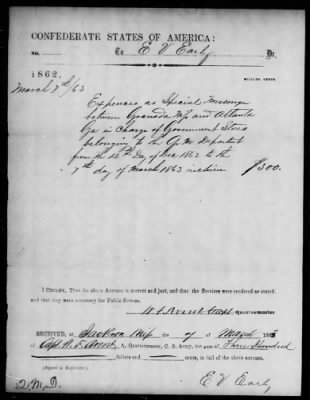 CONFEDERATE STATES OF AMERICA:
No. To E V Early Dr.
1862. DOLLARS. CENTS.
March 7th/63
Expences as Special Messenger
between Granada Mis and Atlanta
Ga in Charge of Government Stores
belonging to the Q M Department
from the 12th Day of Dec 1862 to the
7th day of March 1863 inclusive $300.
I CERTIFY, That the above Account is correct and just, and that the Services were rendered as stated,
and that they were necessary for Public Service.
Quartermaster.
RECEIVED, at Jackson Mis the 7 of March 1863
of Capt A. F. Quartermaster, C. S. Army, the sum of Three Hundred
dollars and cents, in full of the above account.
(Signed in Duplicate.)
E V Early
Q. M. D.